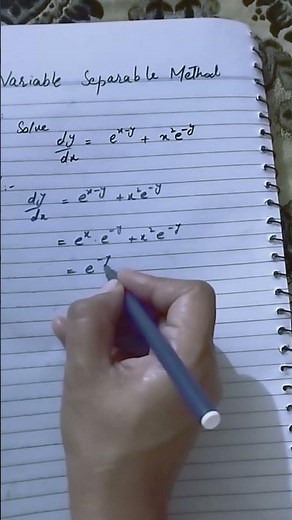 Variable Separable Method
Solve
dy/dx = e^(x-y) + x²e^(-y)
:-
dy/dx = e^(x-y) + x²e^(-y)
= e^x · e^(-y) + x²e^(-y)
= e^(-y)